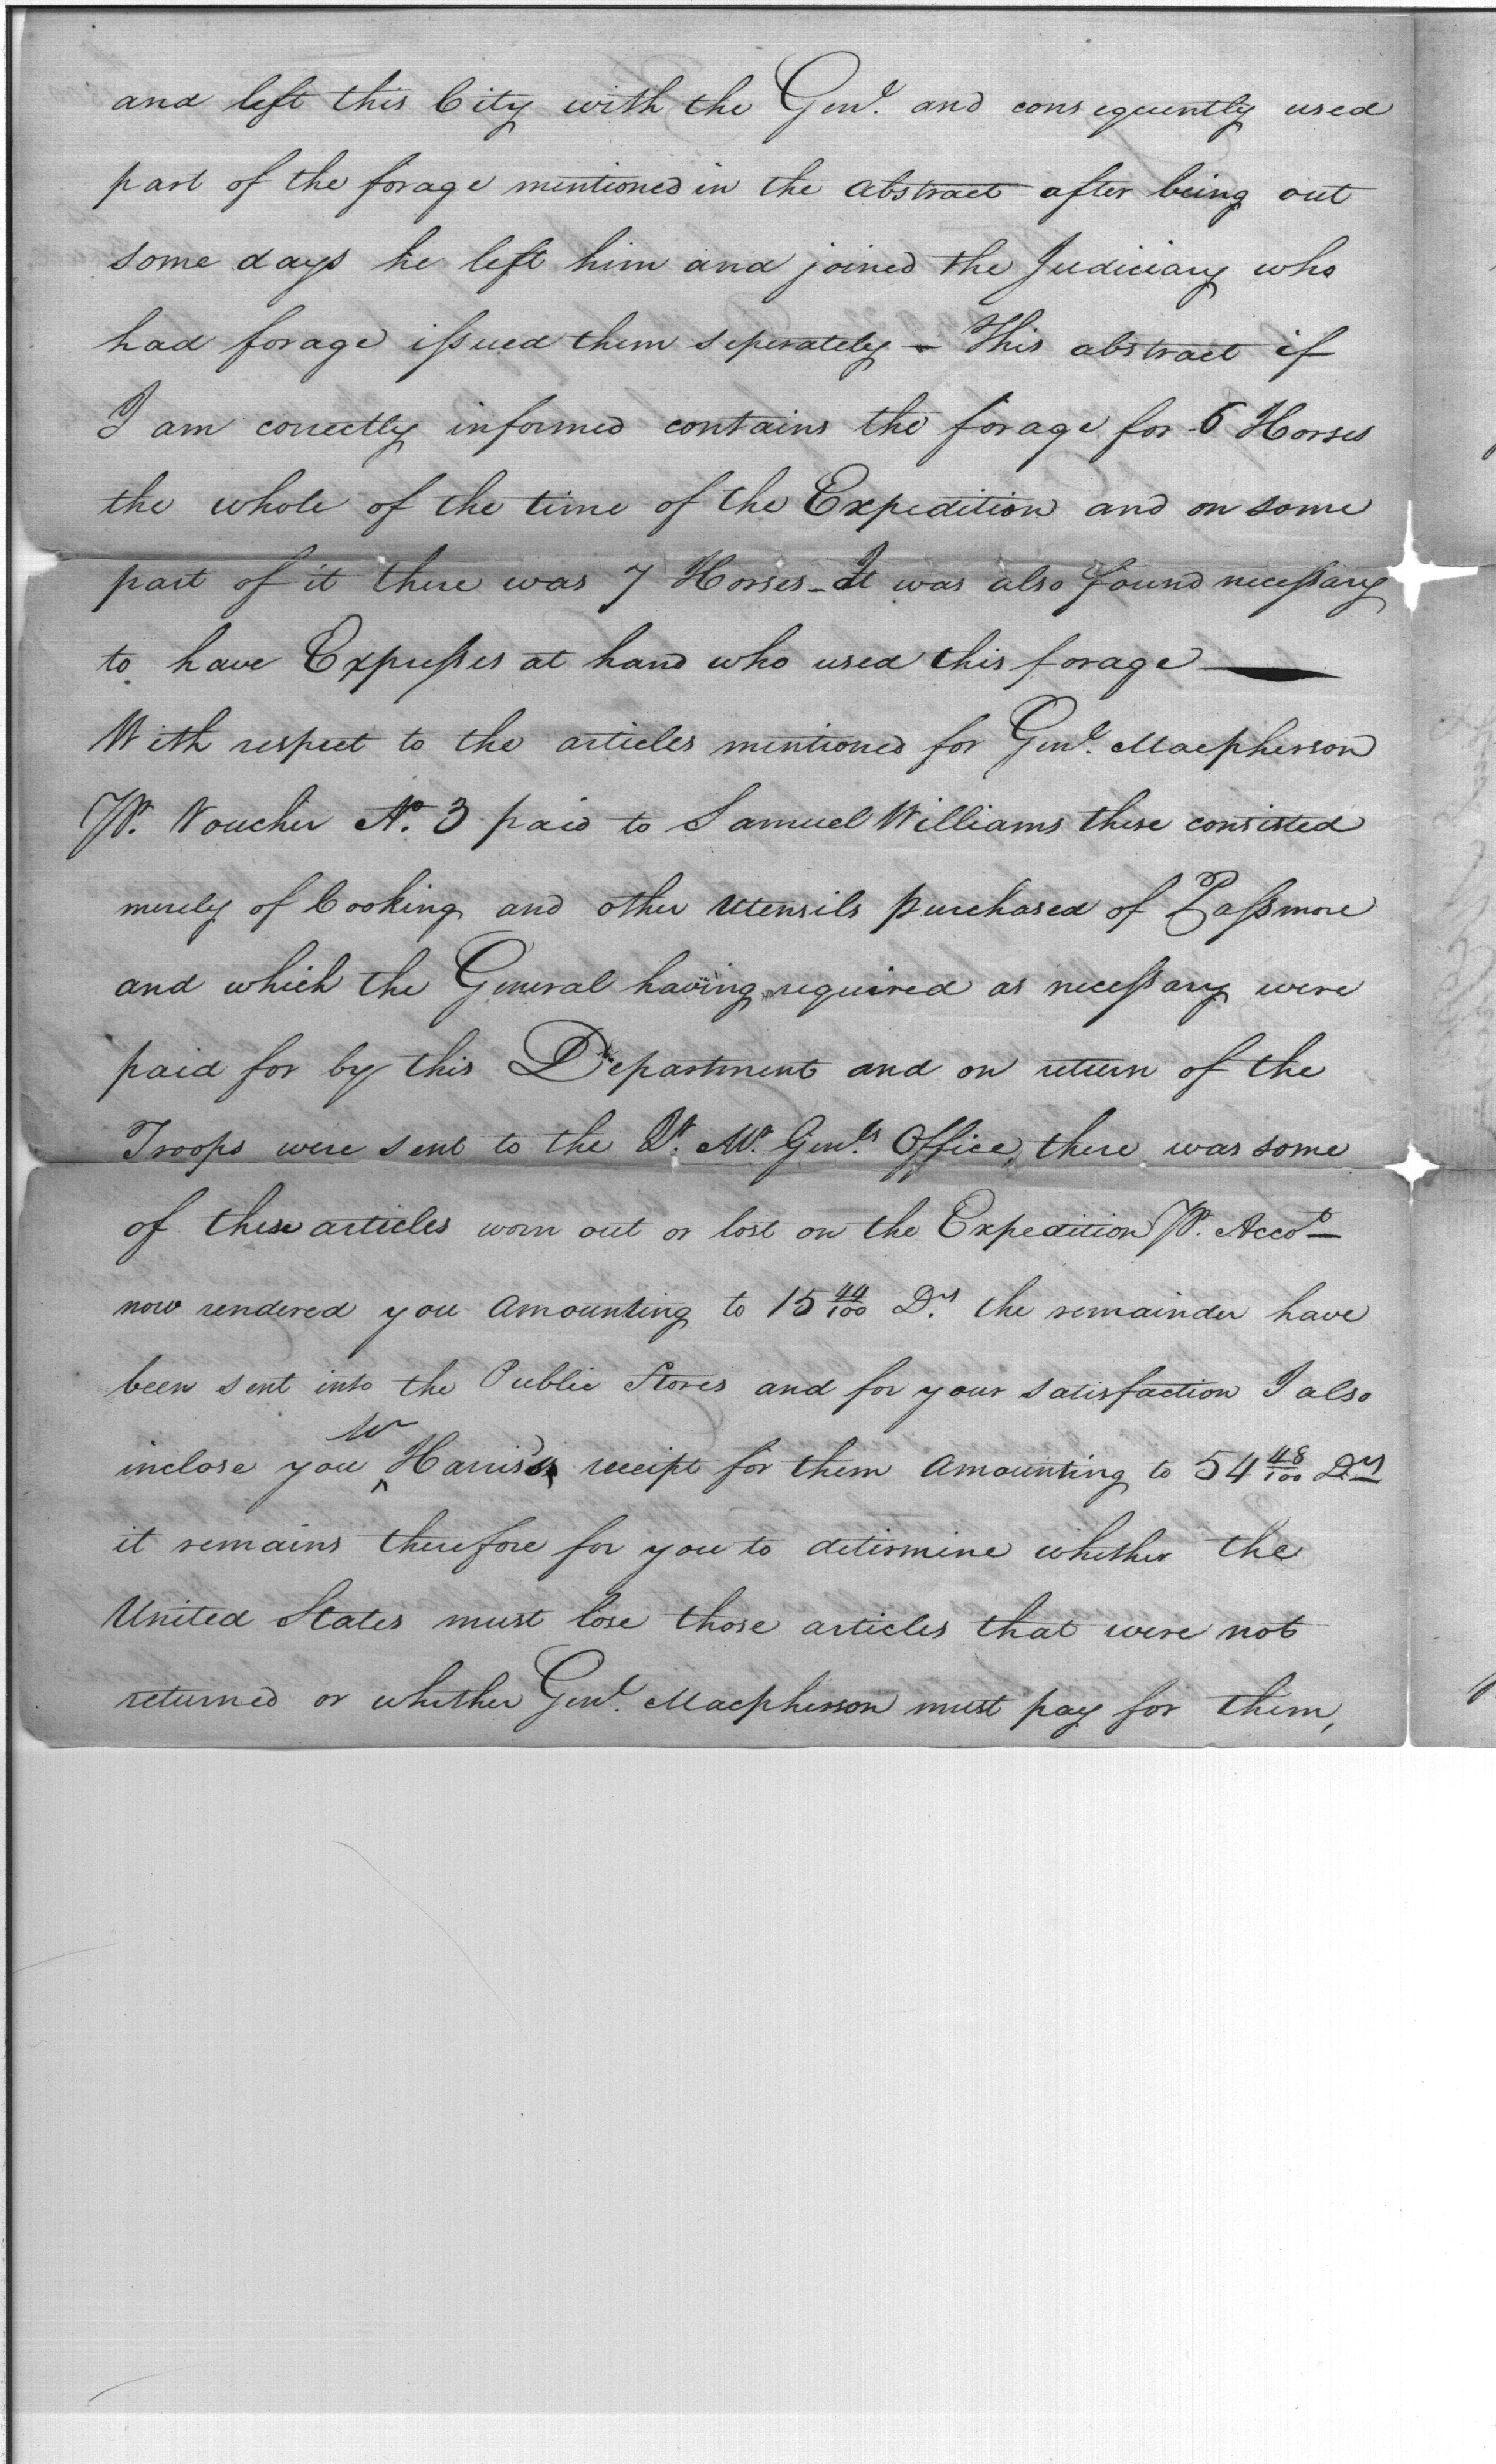 and left this City with the Genl. and consequently used
part of the forage mentioned in the abstract after being out
some days he left him and joined the Judiciary who
had forage issued them seperately - This abstract if
I am correctly informed contains the forage for 6 Horses
the whole of the time of the Expedition and on some
part of it there was 7 Horses - It was also found necessary
to have Expresses at hand who used this forage —
With respect to the articles mentioned for Genl. Macpherson
Pr. Voucher No. 3 paid to Samuel Williams these consisted
merely of Cooking and other Utensils purchased of Passmore
and which the General having required as necessary were
paid for by this Department and on return of the
Troops were sent to the Qr. Mr. Genls. Office, there was some
of these articles worn out or lost on the Expedition Pr. Accot —
now rendered you amounting to 15 44/100 Drs. the remainder have
been sent into the Public Stores and for your satisfaction I also
inclose you Mr Harris's receipt for them amounting to 54 48/100 Drs
it remains therefore for you to determine whether the
United States must lose those articles that were not
returned or whether Genl. Macpherson must pay for them,